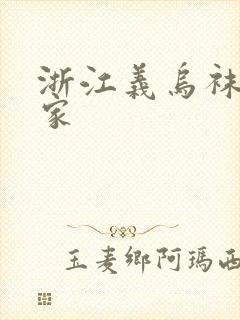 浙江義烏袜
家
玉麦鄉阿瑪西